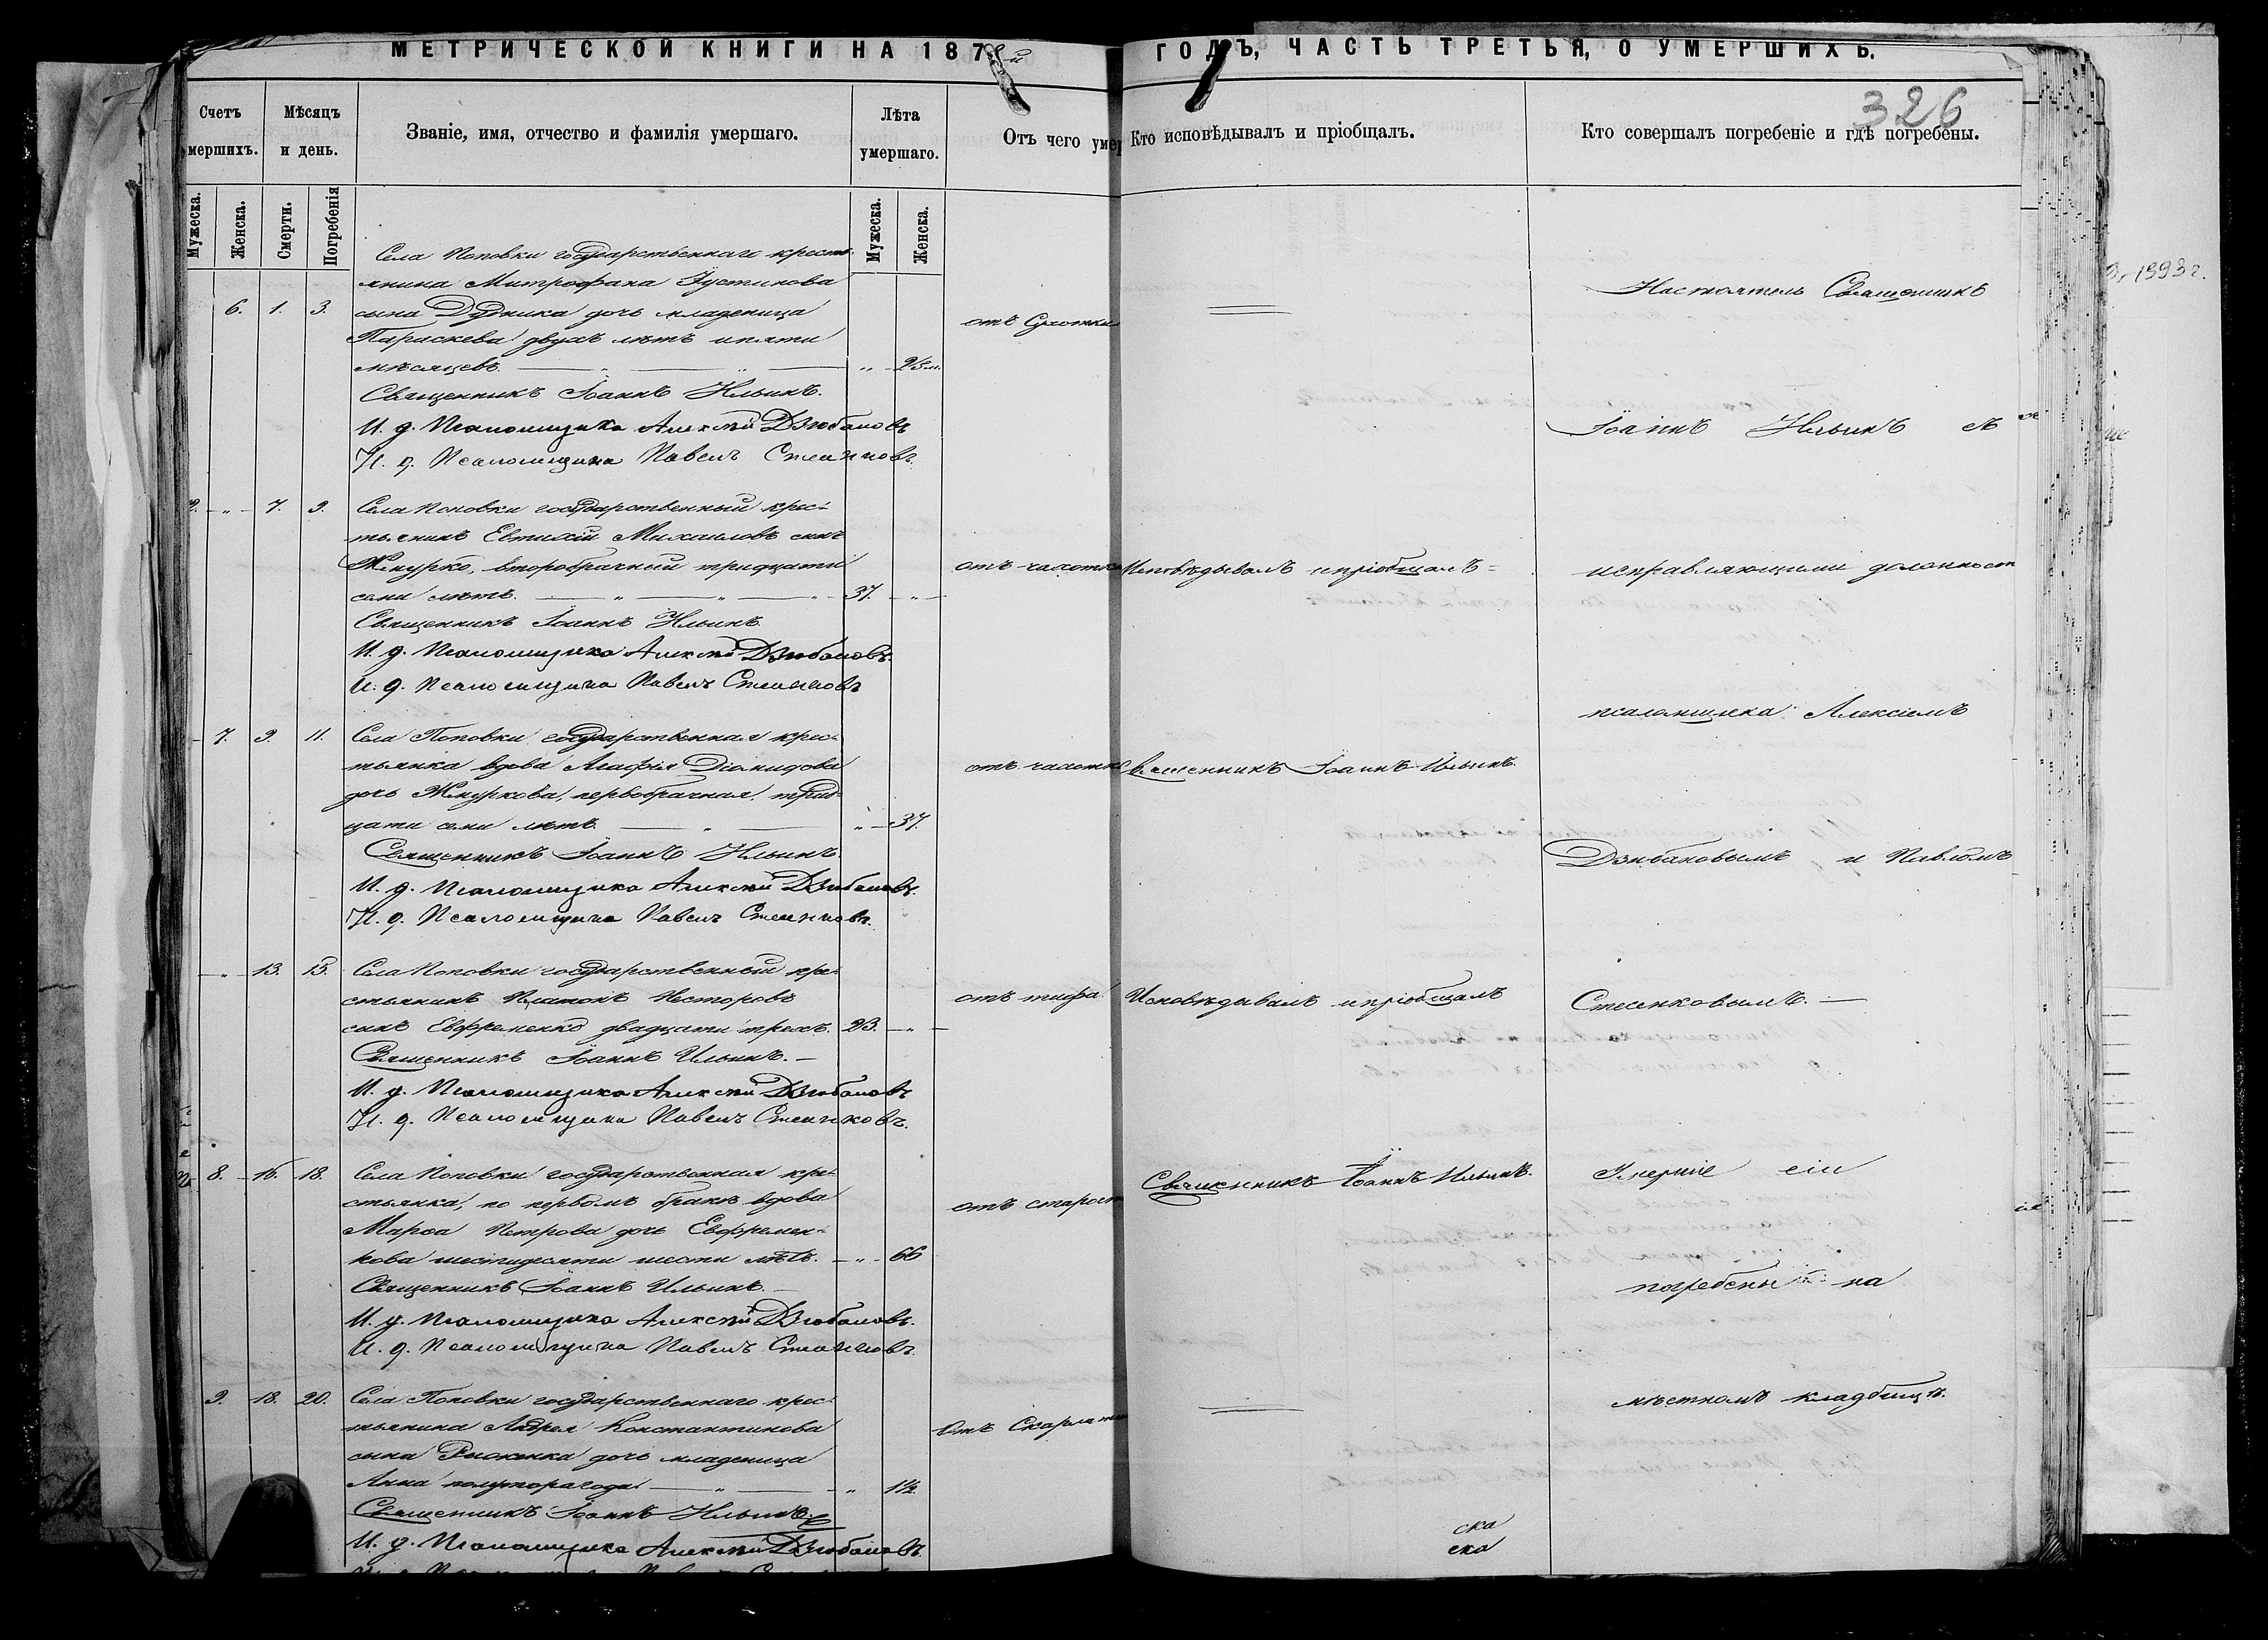 МЕТРИЧЕСКОЙ КНИГИ НА 187 й ГОДЪ, ЧАСТЬ ТРЕТЬЯ, О УМЕРШИХЪ.
326
Счетъ мершихъ.
Мѣсяцъ и день.
Званіе, имя, отчество и фамилія умершаго.
Лѣта умершаго.
Отъ чего умер
Кто исповѣдывалъ и пріобщалъ.
Кто совершалъ погребеніе и гдѣ погребены.
Мужеска.
Женска.
Смерти.
Погребенія
Мужеска.
Женска.
Села Поповки государственнаго кресть-
янина Митрофана Іустинова
6. 1. 3. сына Дудника дочь младеница
Параскева двухъ лѣтъ и пяти
мѣсяцевъ.
Священникъ Іоаннъ Ильинъ.
И. д. Псаломщика Алексѣй Дзюбановъ
И. д. Псаломщика Павелъ
отъ Сухотки
7. 9. Села Поповки государственный крес-
тьянинъ Евтихій Михаиловъ сынъ
Жмурко, второбрачный тридцати
семи лѣтъ. 37.
Священникъ Іоаннъ Ильинъ.
И. д. Псаломщика Алексѣй Дзюбановъ.
И. д. Псаломщика Павелъ
отъ чахотки
Исповѣдывалъ и пріобщалъ
7. 9. 11. Села Поповки государственная крес-
тьянка вдова Агафія Діомидова
дочь Жмуркова, первобрачная, трид-
цати семи лѣтъ. 37.
Священникъ Іоаннъ Ильинъ.
И. д. Псаломщика Алексѣй Дзюбановъ.
И. д. Псаломщика Павелъ
отъ чахотки
Священникъ Іоаннъ Ильинъ.
13. 15. Села Поповки государственный кре-
стьянинъ Платонъ Несторовъ
сынъ Евфременко двадцати трехъ. 23.
Священникъ Іоаннъ Ильинъ.
И. д. Псаломщика Алексѣй Дзюбановъ
И. д. Псаломщика Павелъ
отъ тифа
Исповѣдывалъ и пріобщалъ
8. 16. 18. Села Поповки государственная кре-
стьянка, по первомъ бракѣ вдова
Марфа Петрова дочь Евфремен-
кова шестидесяти шести лѣтъ. 66
Священникъ Іоаннъ Ильинъ.
И. д. Псаломщика Алексѣй Дзюбановъ.
И. д. Псаломщика Павелъ
отъ старост
Священникъ Іоаннъ Ильинъ.
9. 18. 20. Села Поповки государственнаго крес-
тьянина Андрея Константинова
сына дочь младеница
Анна полутора года 1½.
Священникъ Іоаннъ Ильинъ
И. д. Псаломщика Алексѣй Дзюбановъ.
Отъ Скарлатин
Настоятель Священникъ
Іоаннъ Ильинъ съ
исправляющими должност
псаломщика Алексіемъ
Дзюбановымъ и Павломъ
Умершіе сіи
погребены на
мѣстномъ кладбищѣ.
ска
ска